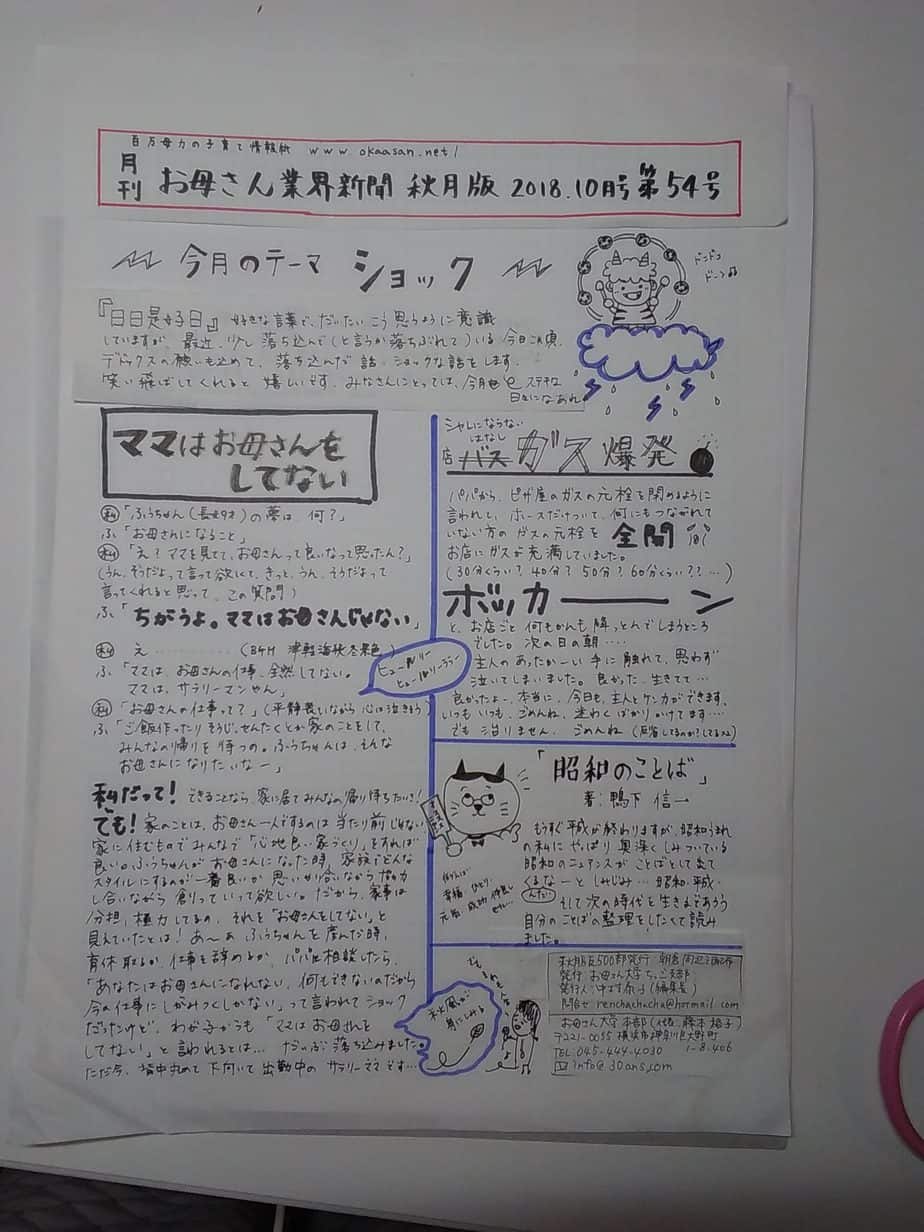 百万母力の子育て情報紙 www.okaasan.net/
月刊 お母さん業界新聞 秋月版 2018.10月号 第54号
今月のテーマ ショック
ドンドコ
ドーン
『日日是好日』 好きな言葉で、だいたいこう思うように意識
していますが、最近、少し落ち込んで(と言うか落ちぶれて)いる今日この頃。
デトックスの願いも込めて、落ち込んだ話・ショックな話をします。
笑い飛ばしてくれると嬉しいです。みなさんにとっては、今月も eステキな
日々になあれ
ママはお母さんを
してない
私「ふうちゃん(長女9才)の夢は、何?」
ふ「お母さんになること」
私「え?ママを見てて、お母さんって良いなって思ったん?」
(うん、そうだよって言って欲しくて、きっと、うん、そうだよって
言ってくれると思って、この質問)
ふ「ちがうよ。ママはお母さんじゃない」
私 え…………(BGM 津軽海峡冬景色)
ふ「ママは、お母さんの仕事、全然してない。
ママは、サラリーマンやん」
私「お母さんの仕事って?」(平静装いながら心は泣きそう)
ふ「ご飯作ったりそうじ、せんたくとか家のことをして、
みんなの帰りを待つの。ふうちゃんは、そんな
お母さんになりたいなー」
ヒュールリー
ヒュールリーララー
私だって! できることなら、家に居てみんなの帰り待ちたいさ!
でも! 家のことは、お母さん一人でするのは当たり前じゃない
家に住むものでみんなで「心地良い家づくり」をすれば
良い。ふうちゃんがお母さんになった時、家族でどんな
スタイルにするのが一番良いか思いやり合いながら協力
し合いながら創りていって欲しい。だから、家事は
分担、極力してるの、それを“お母さんをしてない”と
見えていたとは!あ〜ぁ ふうちゃんを産んだ時、
育休取るか、仕事を辞めるか、パパに相談したら、
「あなたはお母さんになれない、何もできないのだから
今の仕事にしがみつくしかない」って言われてショック
だったけど、わが子からも「ママはお母さんを
してない」と言われるとは… だいぶ落ち込みました。
ただ今、背中丸めて下向いて出勤中のサラリーママです…
シャレにならない
はなし
店 バス ガス爆発
パパから、ピザ屋のガスの元栓を閉めるように
言われて、ホースだけついて、何にもつながれて
いない方のガスの元栓を 全開
お店にガスが充満していました。
(30分くらい?40分?50分?60分くらい??…)
ボッカーーーン
と、お店ごと何もかんも降っとんでしまうところ
でした。次の日の朝……
主人のあったかーい手に触れて、思わず
泣いてしまいました。良かった、生きてて…
良かったよー、本当に、今日も、主人とケンカができます。
いつもいつも、ごめんね、迷わくばかりかけてます…
でも治りません。ごめんね
「昭和のことば」
著:鴨下 信一
もうすぐ平成が終わりますが、昭和うまれ
の私に、やっぱり奥深くしみついている
昭和のニュアンスがことばとして出て
くるなーとしみじみ… 昭和・平成・
そして次の時代と生きるであろう
自分のことばの整理をしたくて読み
ました。
秋風が
身にしみる
秋月版500部発行 朝倉周辺で配布
発行 お母さん大学
問合せ renchachacha@hotmail.com
お母さん大学本部(代表 藤本裕子)
〒221-0055 横浜市神奈川区大野町
1-8-406
TEL 045-444-4030
info@30ans.com